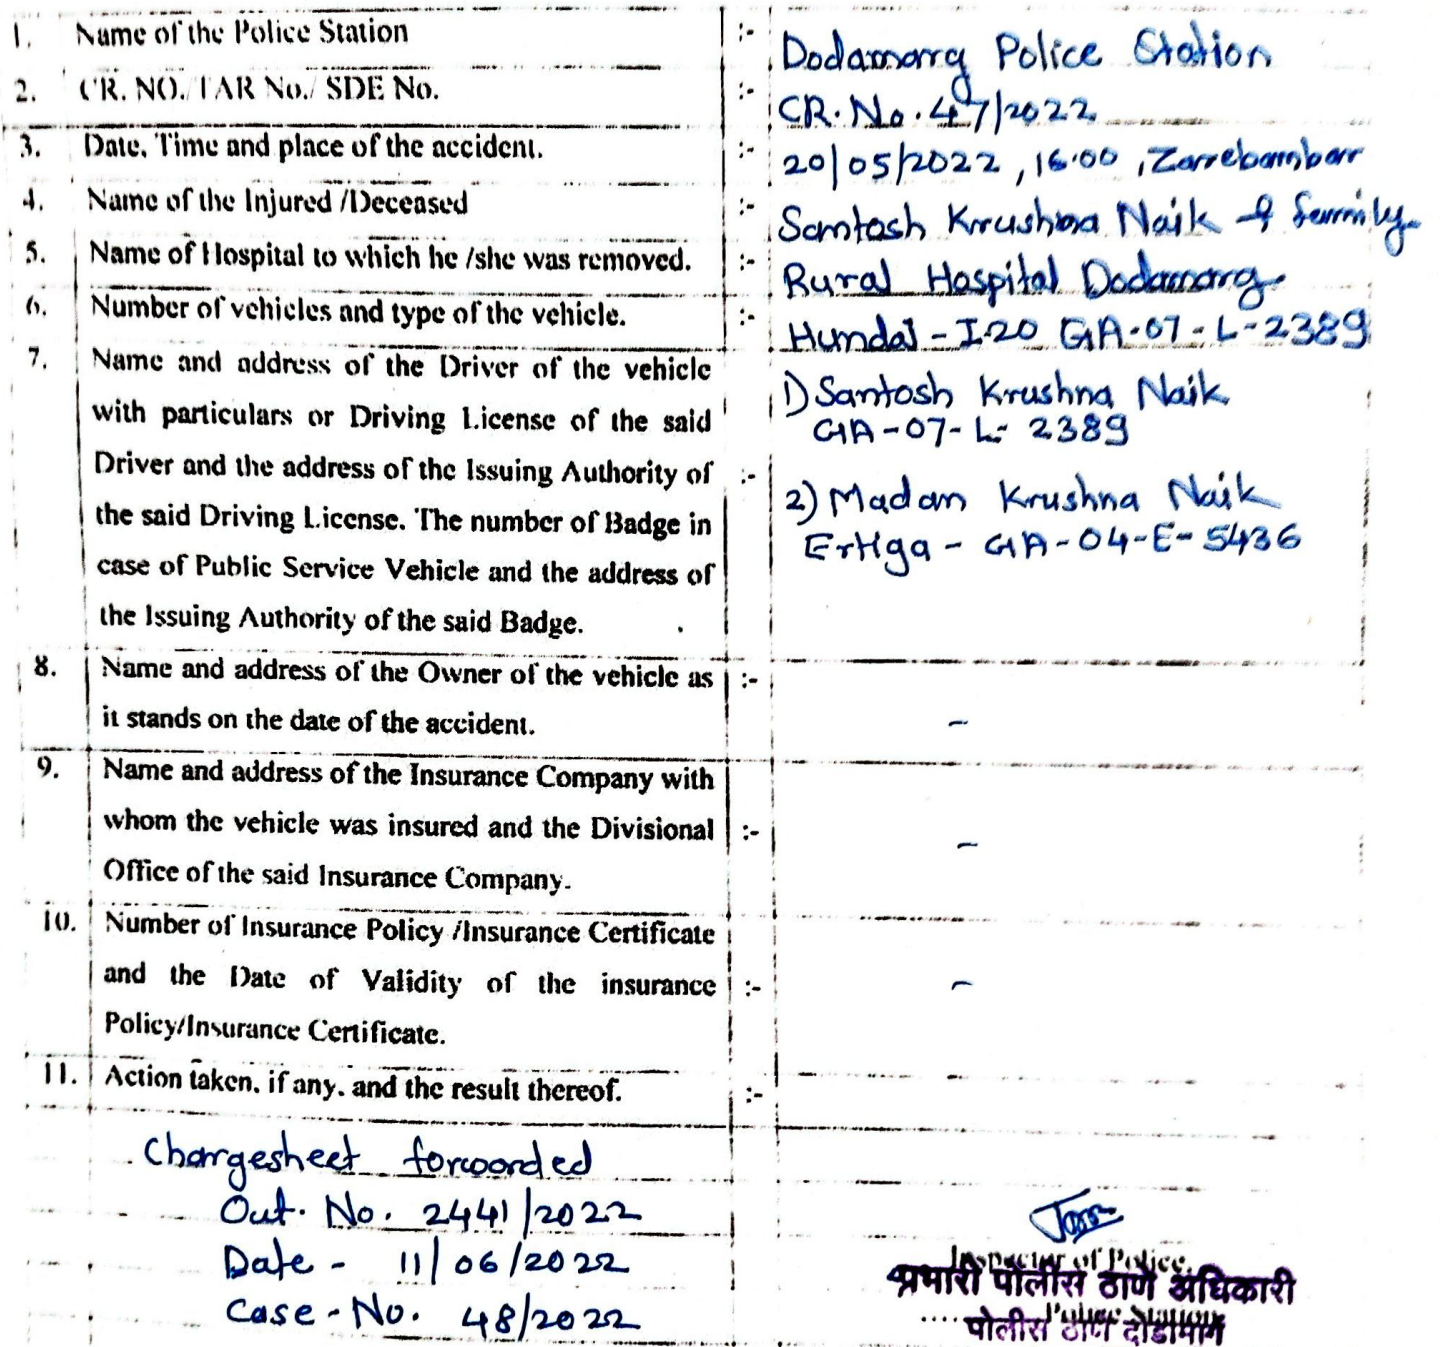 1. Name of the Police Station :- Dodamarg Police Station
2. CR. NO./TAR No./ SDE No. :- CR. No. 47/2022
3. Date, Time and place of the accident. :- 20/05/2022, 16.00, Zarrebambar
4. Name of the Injured /Deceased :- Santosh Krushna Naik & family.
5. Name of Hospital to which he /she was removed. :- Rural Hospital Dodamarg.
6. Number of vehicles and type of the vehicle. :- Hundai - I-20 GA-07-L-2389
7. Name and address of the Driver of the vehicle
with particulars or Driving License of the said
Driver and the address of the Issuing Authority of :-
the said Driving License. The number of Badge in
case of Public Service Vehicle and the address of
the Issuing Authority of the said Badge.
1) Santosh Krushna Naik
GA-07-L-2389
2) Madan Krushna Naik
Ertiga - GA-04-E-5436
8. Name and address of the Owner of the vehicle as :-
it stands on the date of the accident. -
9. Name and address of the Insurance Company with
whom the vehicle was insured and the Divisional :- -
Office of the said Insurance Company.
10. Number of Insurance Policy /Insurance Certificate
and the Date of Validity of the insurance :- -
Policy/Insurance Certificate.
11. Action taken, if any, and the result thereof. :-
Chargesheet forwarded
Out. No. 2441/2022
Date - 11/06/2022
Case - No. 48/2022
Inspector of Police,
प्रभारी पोलीस ठाणे अधिकारी
.... Police Station
पोलीस ठाणे दोडामार्ग